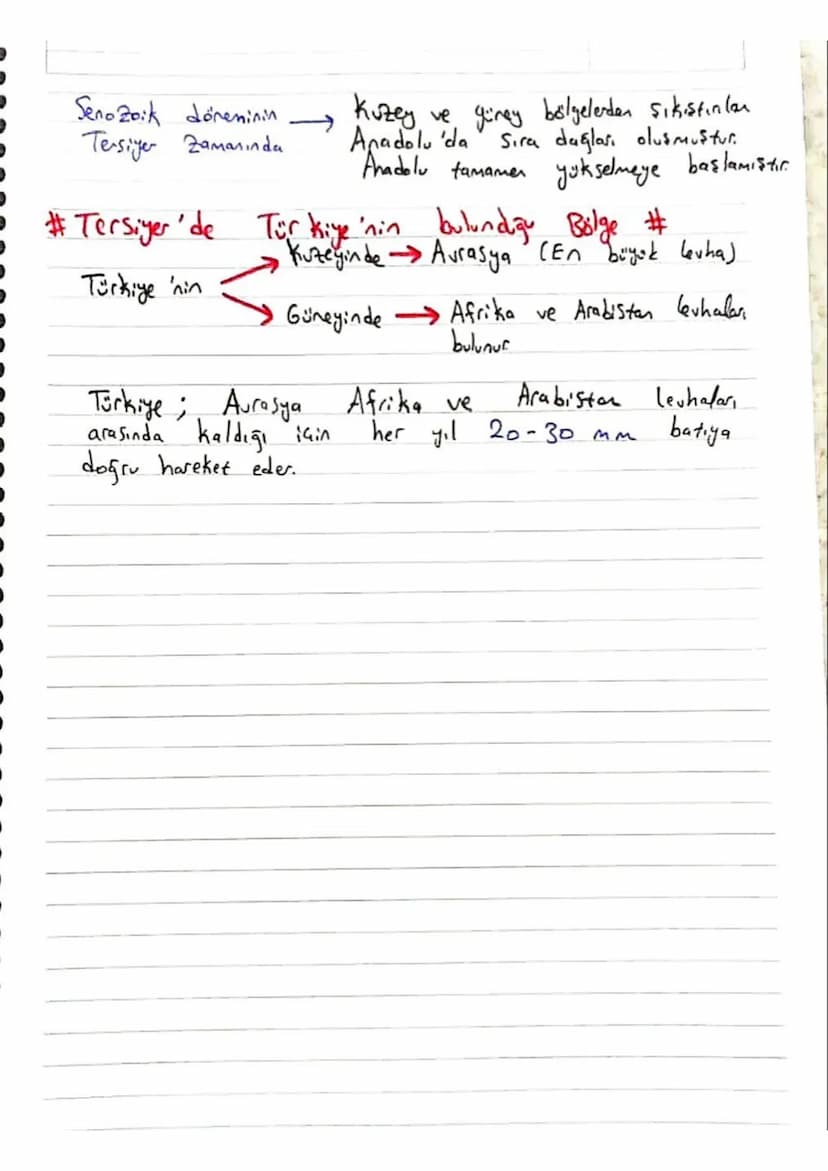 Senozoik döneminin → Kuzey ve güney bölgelerden sıkıştırılan
Tersiyer zamanında Anadolu'da sıra dağları oluşmuştur.
Anadolu tamamen yükselmeye başlamıştır.
# Tersiyer'de Türkiye'nin bulunduğu Bölge #
Kuzeyinde → Avrasya (En büyük levha)
Türkiye'nin
Güneyinde → Afrika ve Arabistan levhaları
bulunur
Türkiye; Avrasya Afrika ve Arabistan levhaları
arasında kaldığı için her yıl 20-30 mm batıya
doğru hareket eder.